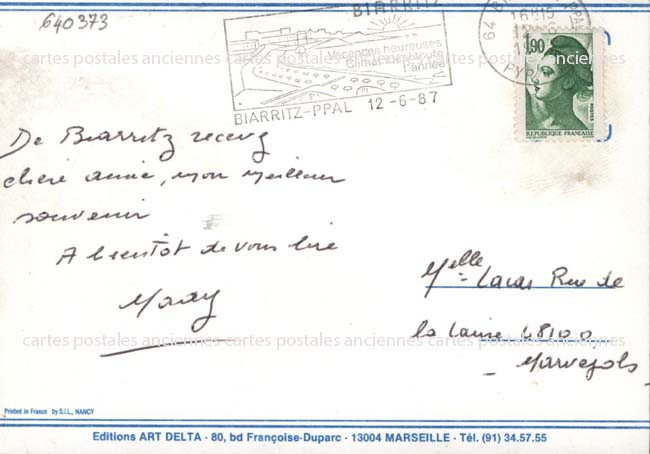 640373
BIARRITZ
Vacances heureuses
Climat idéal toute
l'année
BIARRITZ-PPAL 12-6-87
64 B PPAL
16H15
12-6
PYR
1,90
POSTES
REPUBLIQUE FRANÇAISE
cartes postales anciennes cartes postales anciennes cartes postales anciennes
De Biarritz recevez
chère amie, mon meilleur
souvenir
A bientôt de vous lire
cartes postales anciennes cartes postales anciennes cartes postales anciennes
Melle Lacas Rue de
la 48100
Marvejols
cartes postales anciennes cartes postales anciennes cartes postales anciennes
Printed in France by S.I.L., NANCY
Editions ART DELTA - 80, bd Françoise-Duparc - 13004 MARSEILLE - Tél. (91) 34.57.55